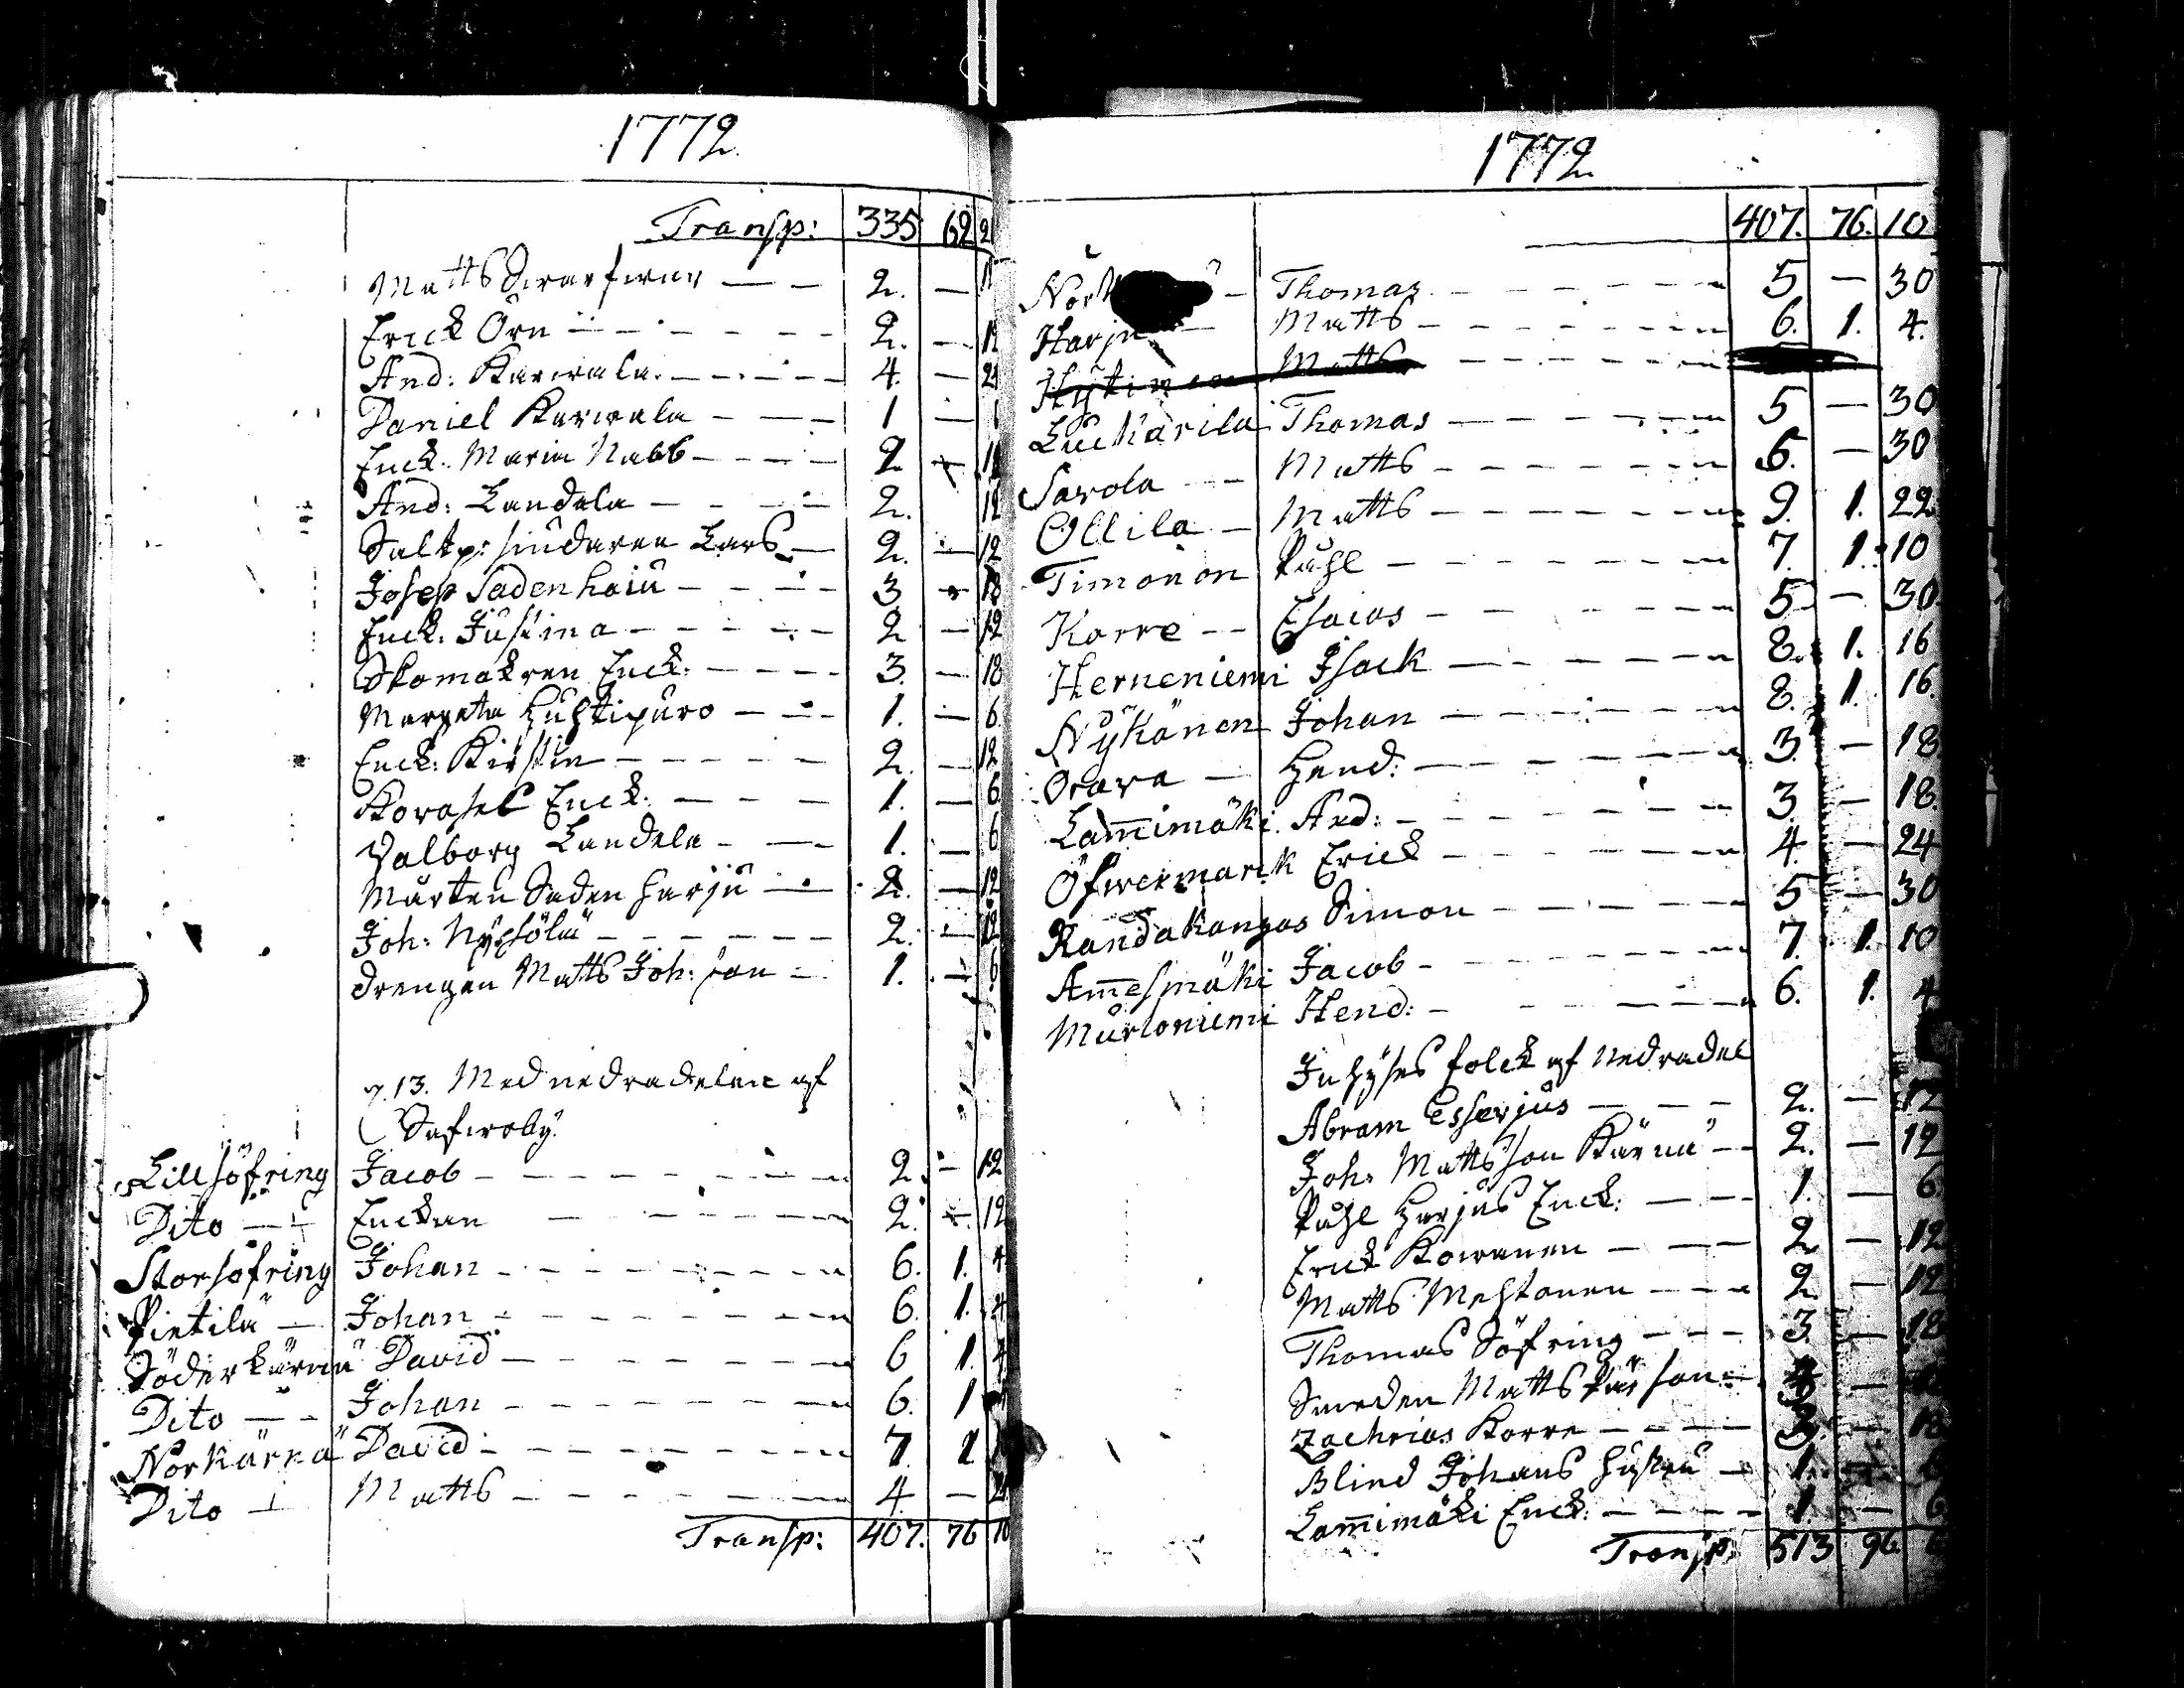 1772
Transp: 335 62 2
Matts 2. —
Erick Örn 2. — 12
And: Karwala 4. — 24
Daniel Karwala 1 —
Enck: Maria Nabb 2 — 12
And: Landela 2. 12
Saltp: siudaren Lars 2. — 12
Josep Sadenhaiu 3 — 18
Enck: Justina 2 — 12
Skomakren Enck: 3. — 18
Margeta Huhtipuro 1. — 6
Enck: Kirstin 2. — 12
Korasel Enck: 1. — 6
Valborg Landela 1. — 6
Mårten Saden harju 2. — 12
Joh: Nyhölm 2. — 12
drengen Matts Joh:son 1. — 6
13. Med nedradelen af
Safwoby.
Lillsöfring Jacob 2. — 12
Dito Enckan 2. — 12
Storsöfring Johan 6. 1. 4
Pietilä Johan 6. 1. 4
Söderkärnä David 6 1. 4
Dito Johan 6. 1
Norkärnä David 7 1
Dito Matts 4 — 24
Transp: 407. 76 10
1772.
407. 76. 10
Thomas 5 — 30
Harju Matts 6. 1. 4.
Hytinen Matts
Luckarila Thomas 5 — 30
Sarola Matts 5. — 30
Ollila Matts 9. 1. 22
Timonon Påhl 7. 1. 10
Korre Esaias 5 — 30
Herneniemi Isack 8. 1. 16
Nykänen Johan 8. 1. 16.
Orava Hend: 3. — 18
Lam̅imäki And: 3 — 18.
Öfwermarck Erick 4. — 24
Randakangas Simon 5 — 30
Am̅esmäki Jacob 7. 1. 10
Murtoniemi Hend: 6. 1. 4
Inhyses folck af Nedradel
Abram Esserjus 2. — 12
Joh: Mattsson Kärnä 2. — 12
Påhl Harjus Enck: 1. — 6
Erick Kowanen 2 — 12
Matts Mehtonen 2 — 12
Thomas Söfring 3. — 18
Smeden Matts Pärson
Zachrias Korre 3. — 18
Blind Johans hustru 1. — 6
Lam̅imäki Enck: 1. — 6
Transp: 513 96. 6